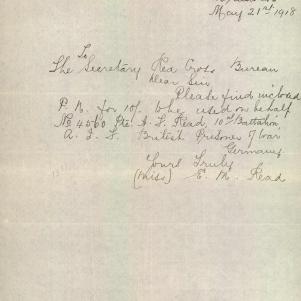 May 21st 1918
To
The Secretary Red Cross Bureau
Dear Sir
Please find inclosed
P. N. for 10/- to be used on behalf
No 4560 Pte. I. L. Read, 10th Battalion
A. I. F. British Prisoner of War
Germany
Yours Truly
(Miss) E. M. Read